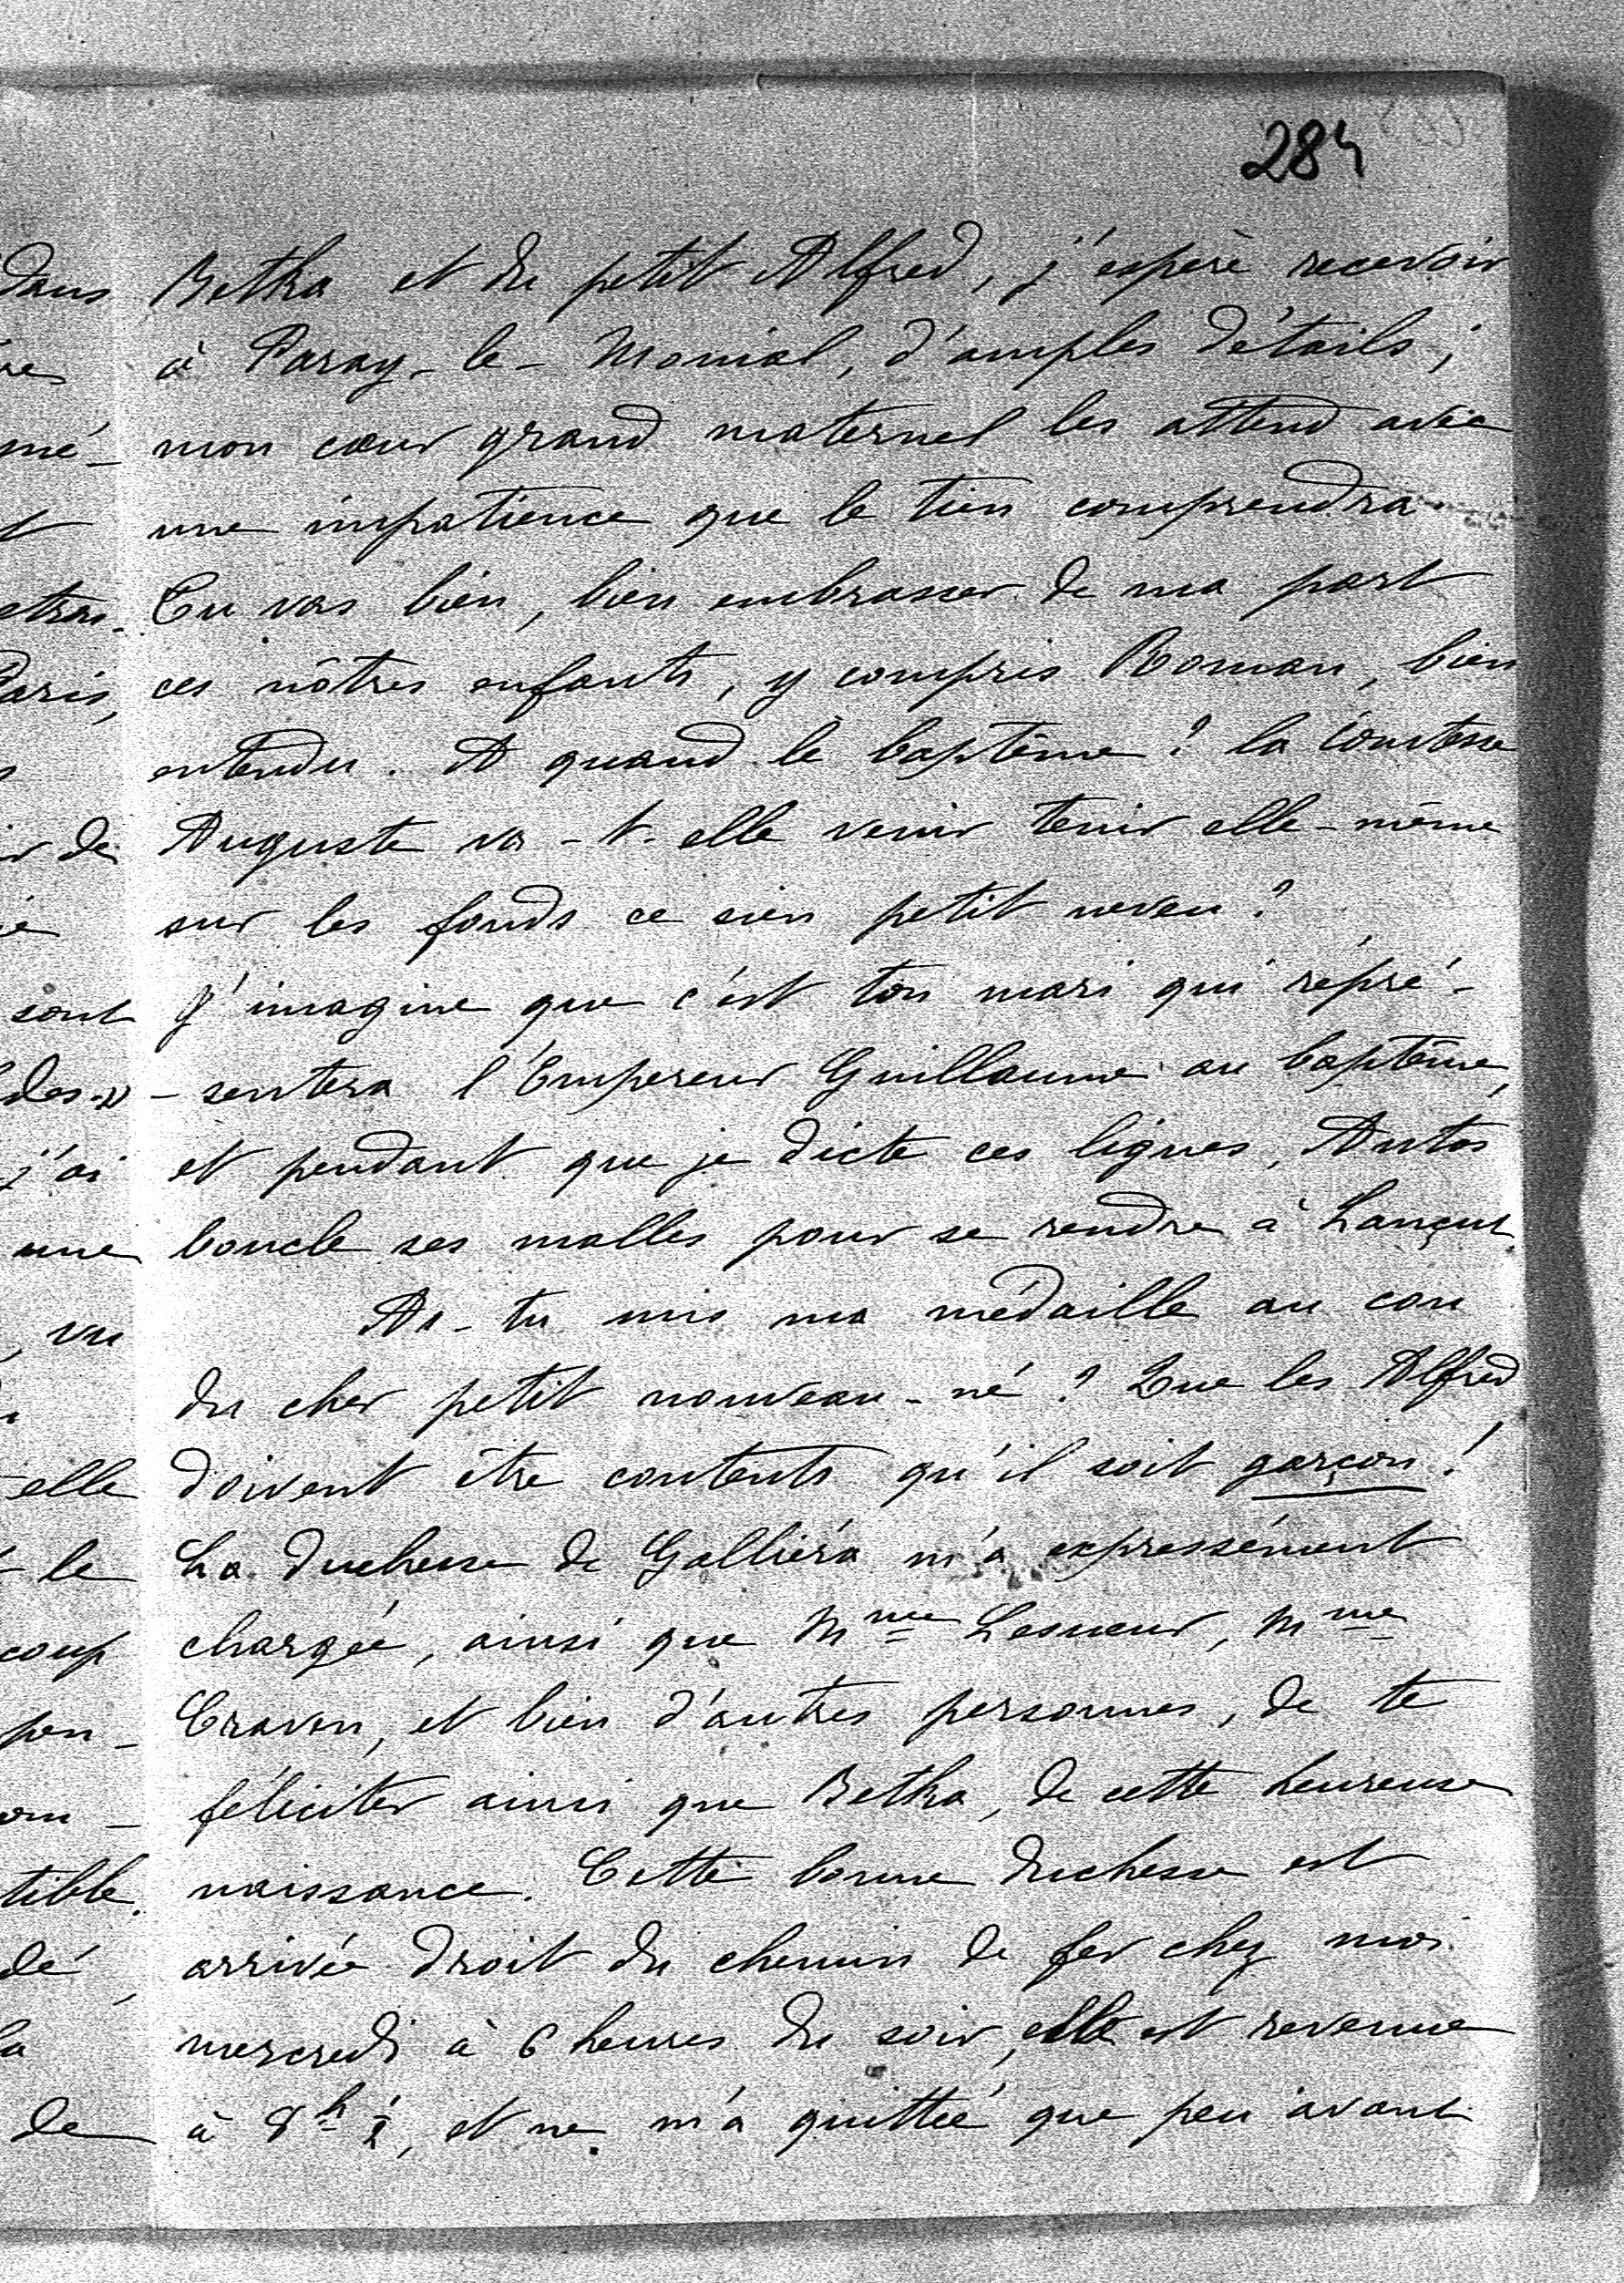 284
Betka et du petit Alfred, j'espère recevoir
à Paray-le-Monial, d'amples détails;
mon cœur grand maternel les attend avec
une impatience que le tien comprendra
Tu vas bien, bien embrasser de ma part
ces nôtres enfants, y compris Roman, bien
entendu. A quand le baptême? la Comtesse
Auguste va-t-elle venir tenir elle-même
sur les fonds ce sien petit neveu?
J'imagine que c'est ton mari qui repré-
-sentera l'Empereur Guillaume au baptême,
et pendant que je dicte ces lignes, Antos
boucle ses malles pour se rendre à Lançut.
As-tu mis ma médaille au cou
du cher petit nouveau-né? Que les Alfred
doivent être contents qu'il soit garçon!
La duchesse de Galliéra m'a expressément
chargée, ainsi que Mme Lesueur, Mme
Craven, et bien d'autres personnes, de te
féliciter ainsi que Betka, de cette heureuse
naissance. Cette bonne duchesse est
arrivée droit du chemin de fer chez moi
mercredi à 6 heures du soir, elle est revenue
à 8h ½, et ne m'a quittée que peu avant
dans
mé-
Paris,
de
sont
j'ai
une
, vu
-elle
le
coup
pen-
tible.
dé,
de